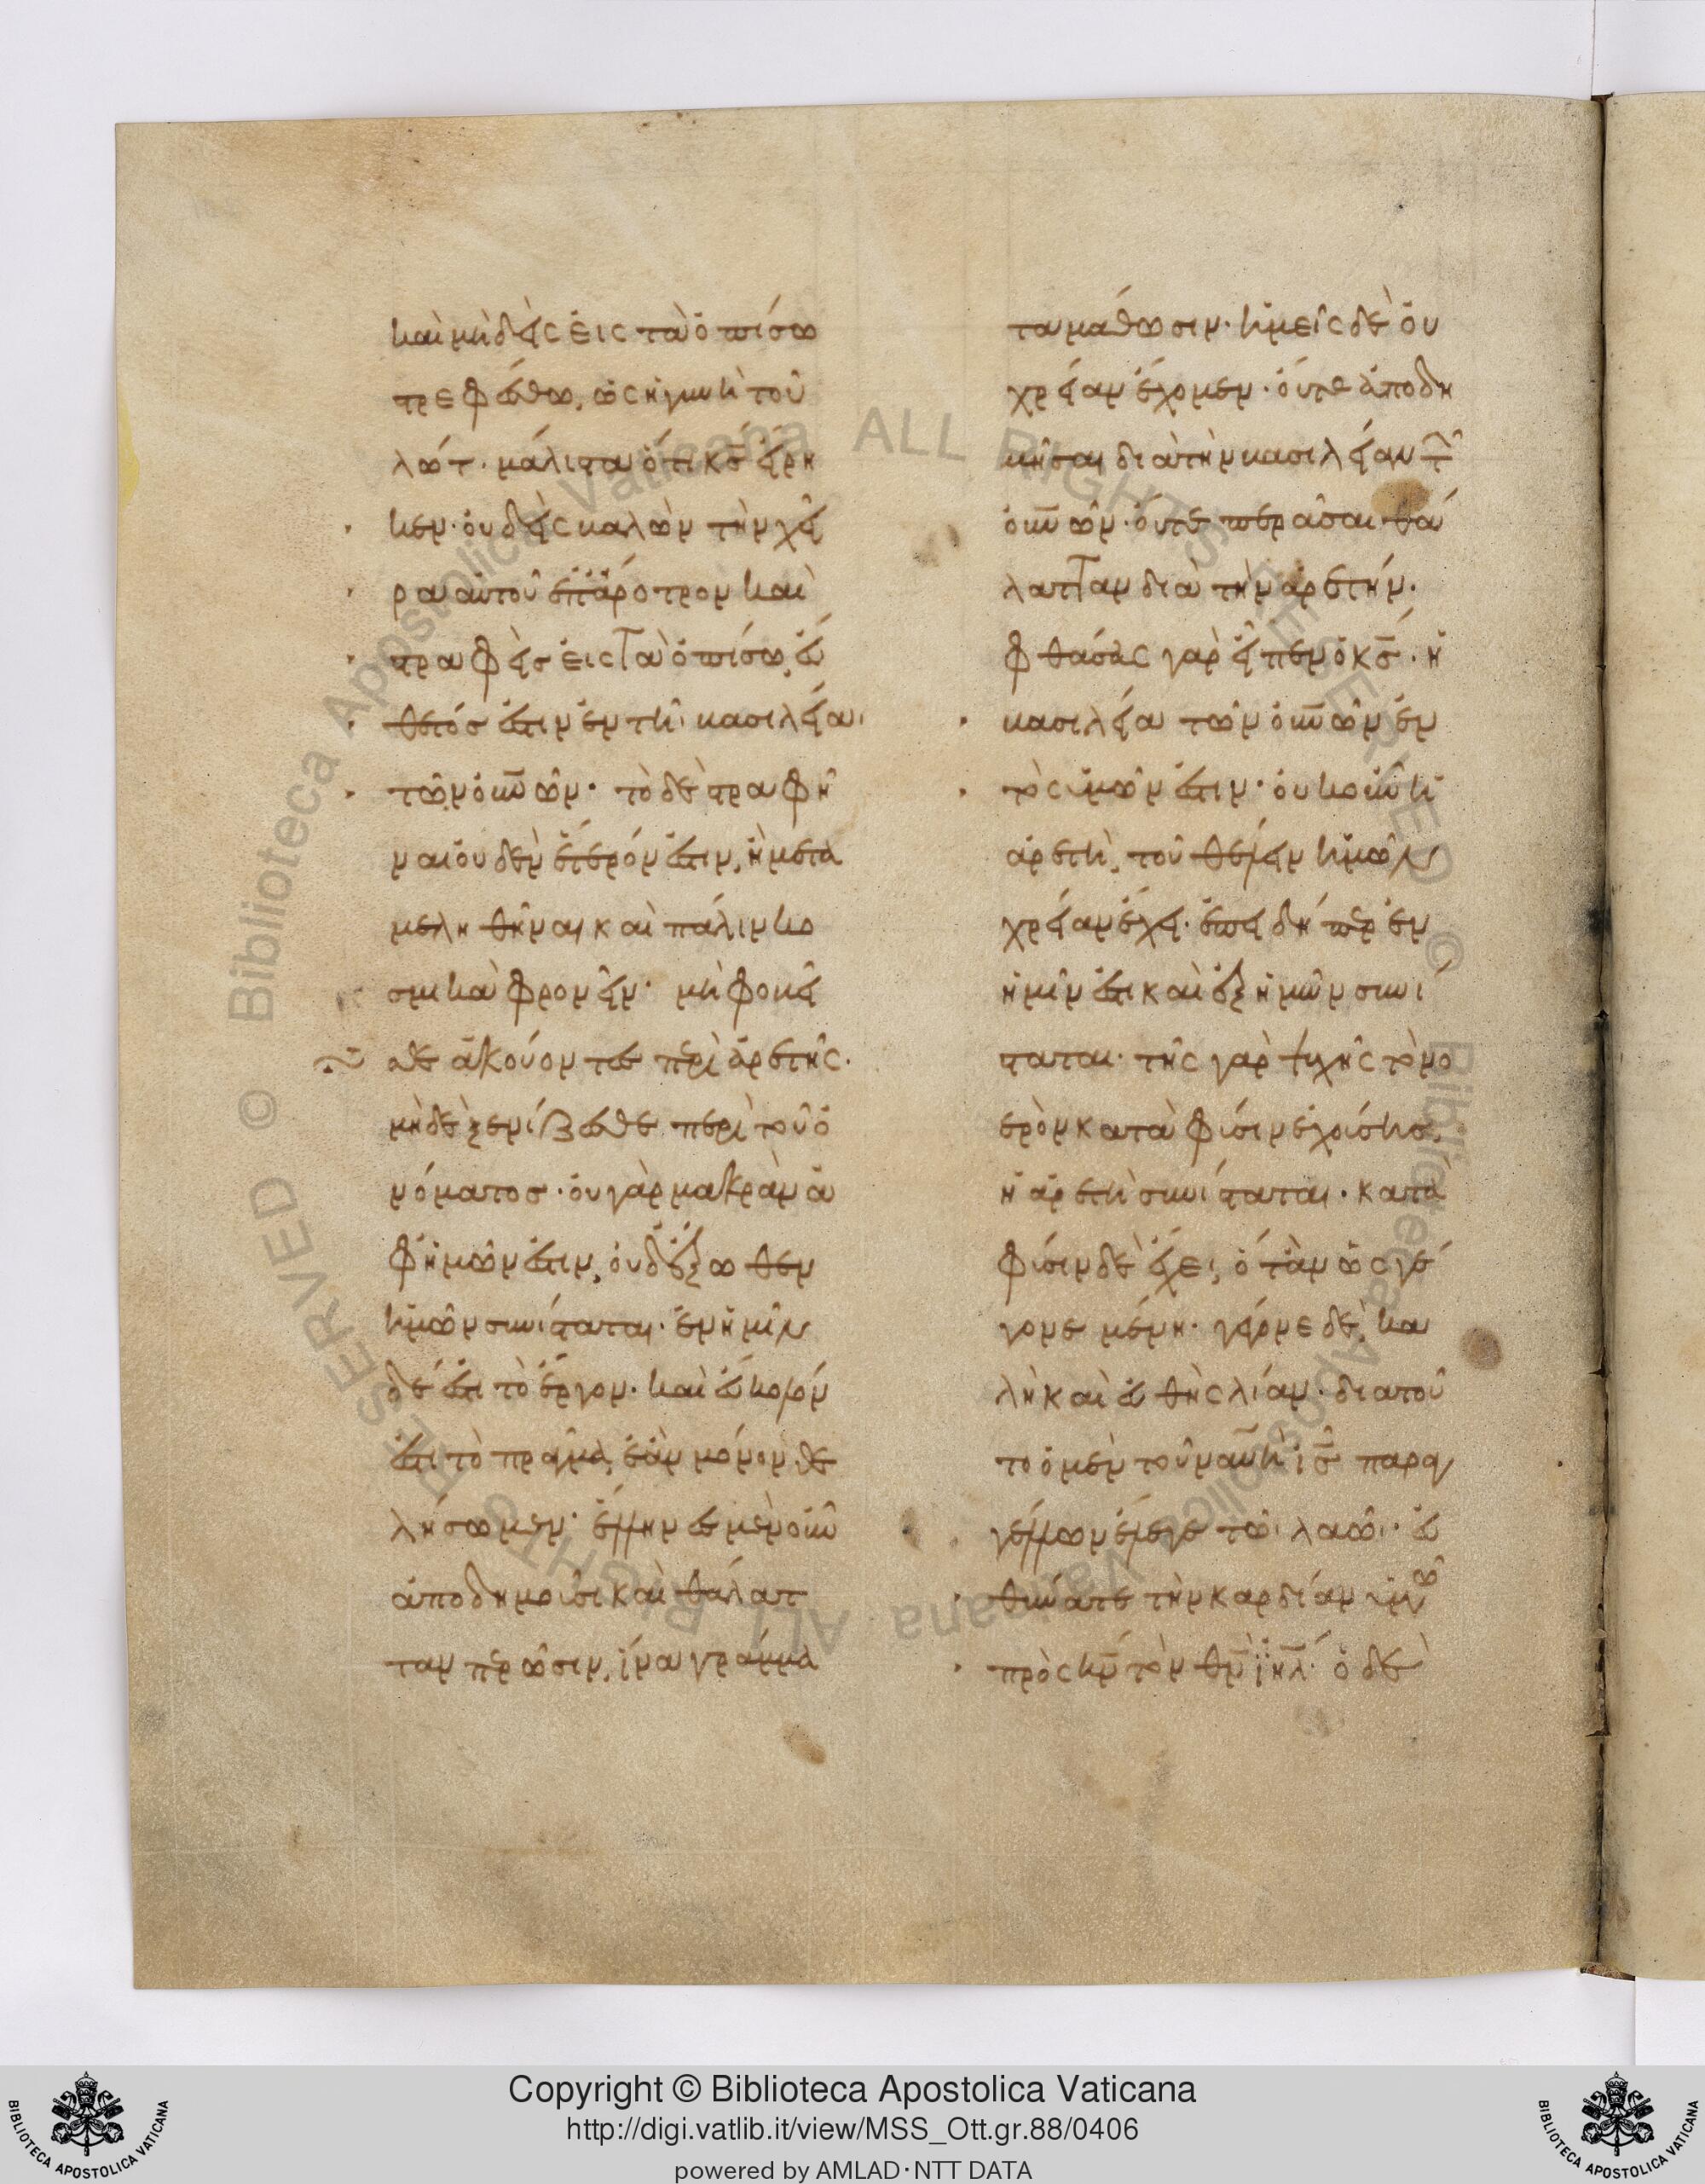 καὶ μηδεὶς εἰς τὰ ὀπίσω
στρεφέσθω, ὡς ἡ γυνὴ τοῦ
λώτ· μάλιστα ὅτι κ̅ς̅ εἴρη
κεν· οὐδεὶς βαλὼν τὴν χεῖ
ρα αὐτοῦ ἐπ' ἄροτρον καὶ
στραφεὶς εἰς τὰ ὀπίσω, εὔ
θετός ἐστιν ἐν τῇ βασιλείᾳ
τῶν ο̅υ̅νῶν· τὸ δὲ στραφῆ
ναι οὐδὲν ἕτερόν ἐστιν, ἢ μετα
μεληθῆναι καὶ πάλιν κο
σμικὰ φρονεῖν· μὴ φοβεῖ
σθε ἀκούοντες περὶ ἀρετῆς·
μηδὲ ξενίζεσθε περὶ τοῦ ὀ
νόματος· οὐ γὰρ μακρὰν ἀ
φ' ἡμῶν ἐστιν, οὐδ' ἔξωθεν
ἡμῶν συνίσταται· ἐν ἡμῖν
δέ ἐστι τὸ ἔργον· καὶ εὔκολόν
ἐστι τὸ πρᾶγμα, ἐὰν μόνον θε
λήσωμεν· ἕλληνες μὲν οὖν
ἀποδημοῦσι καὶ θάλατ
ταν περῶσιν, ἵνα γράμμα
τα μάθωσιν· ἡμεῖς δὲ οὐ
χρείαν ἔχομεν· οὔτε ἀποδη
μῆσαι διὰ τὴν βασιλείαν τ͂
ο̅υ̅νῶν· οὔτε περᾶσαι θά
λατταν διὰ τὴν ἀρετήν·
φθάσας γὰρ εἶπεν ὁ κ̅ς̅· ἡ
βασιλεία τῶν ο̅υ̅νῶν ἐν
τὸς ὑμῶν ἐστιν· οὐκοῦν ἡ
ἀρετὴ, τοῦ θέλειν ἡμῶν
χρείαν ἔχει· ἐπειδήπερ ἐν
ἡμῖν ἐστι καὶ ἐξ ἡμῶν συνί
σταται· τῆς γὰρ ψυχῆς τὸ νο
ερὸν κατὰ φύσιν ἐχούσης,
ἡ ἀρετὴ συνίσταται· κατὰ
φύσιν δὲ ἔχει, ὅταν ὡς γέ
γονε μένῃ· γέγονε δὲ, κα
λὴ καὶ εὐθὴς λίαν· διὰ τοῦ
το ὁ μὲν τοῦ ναυῆ ι̅ς̅ παραγ
γέλλων ἔλεγε τῷ λαῷ· εὐ
θύνατε τὴν καρδίαν ὑμῶ
πρὸς κ̅ν̅ τὸν θ̅ν̅ ι̅η̅λ̅· ὁ δὲ
Copyright © Biblioteca Apostolica Vaticana
http://digi.vatlib.it/view/MSS_Ott.gr.88/0406
powered by AMLAD·NTT DATA
BIBLIOTECA APOSTOLICA VATICANA
BIBLIOTECA APOSTOLICA VATICANA
© Biblioteca Apostolica Vaticana ALL RIGHTS RESERVED
© Biblioteca Apostolica Vaticana ALL RIGHTS RESERVED